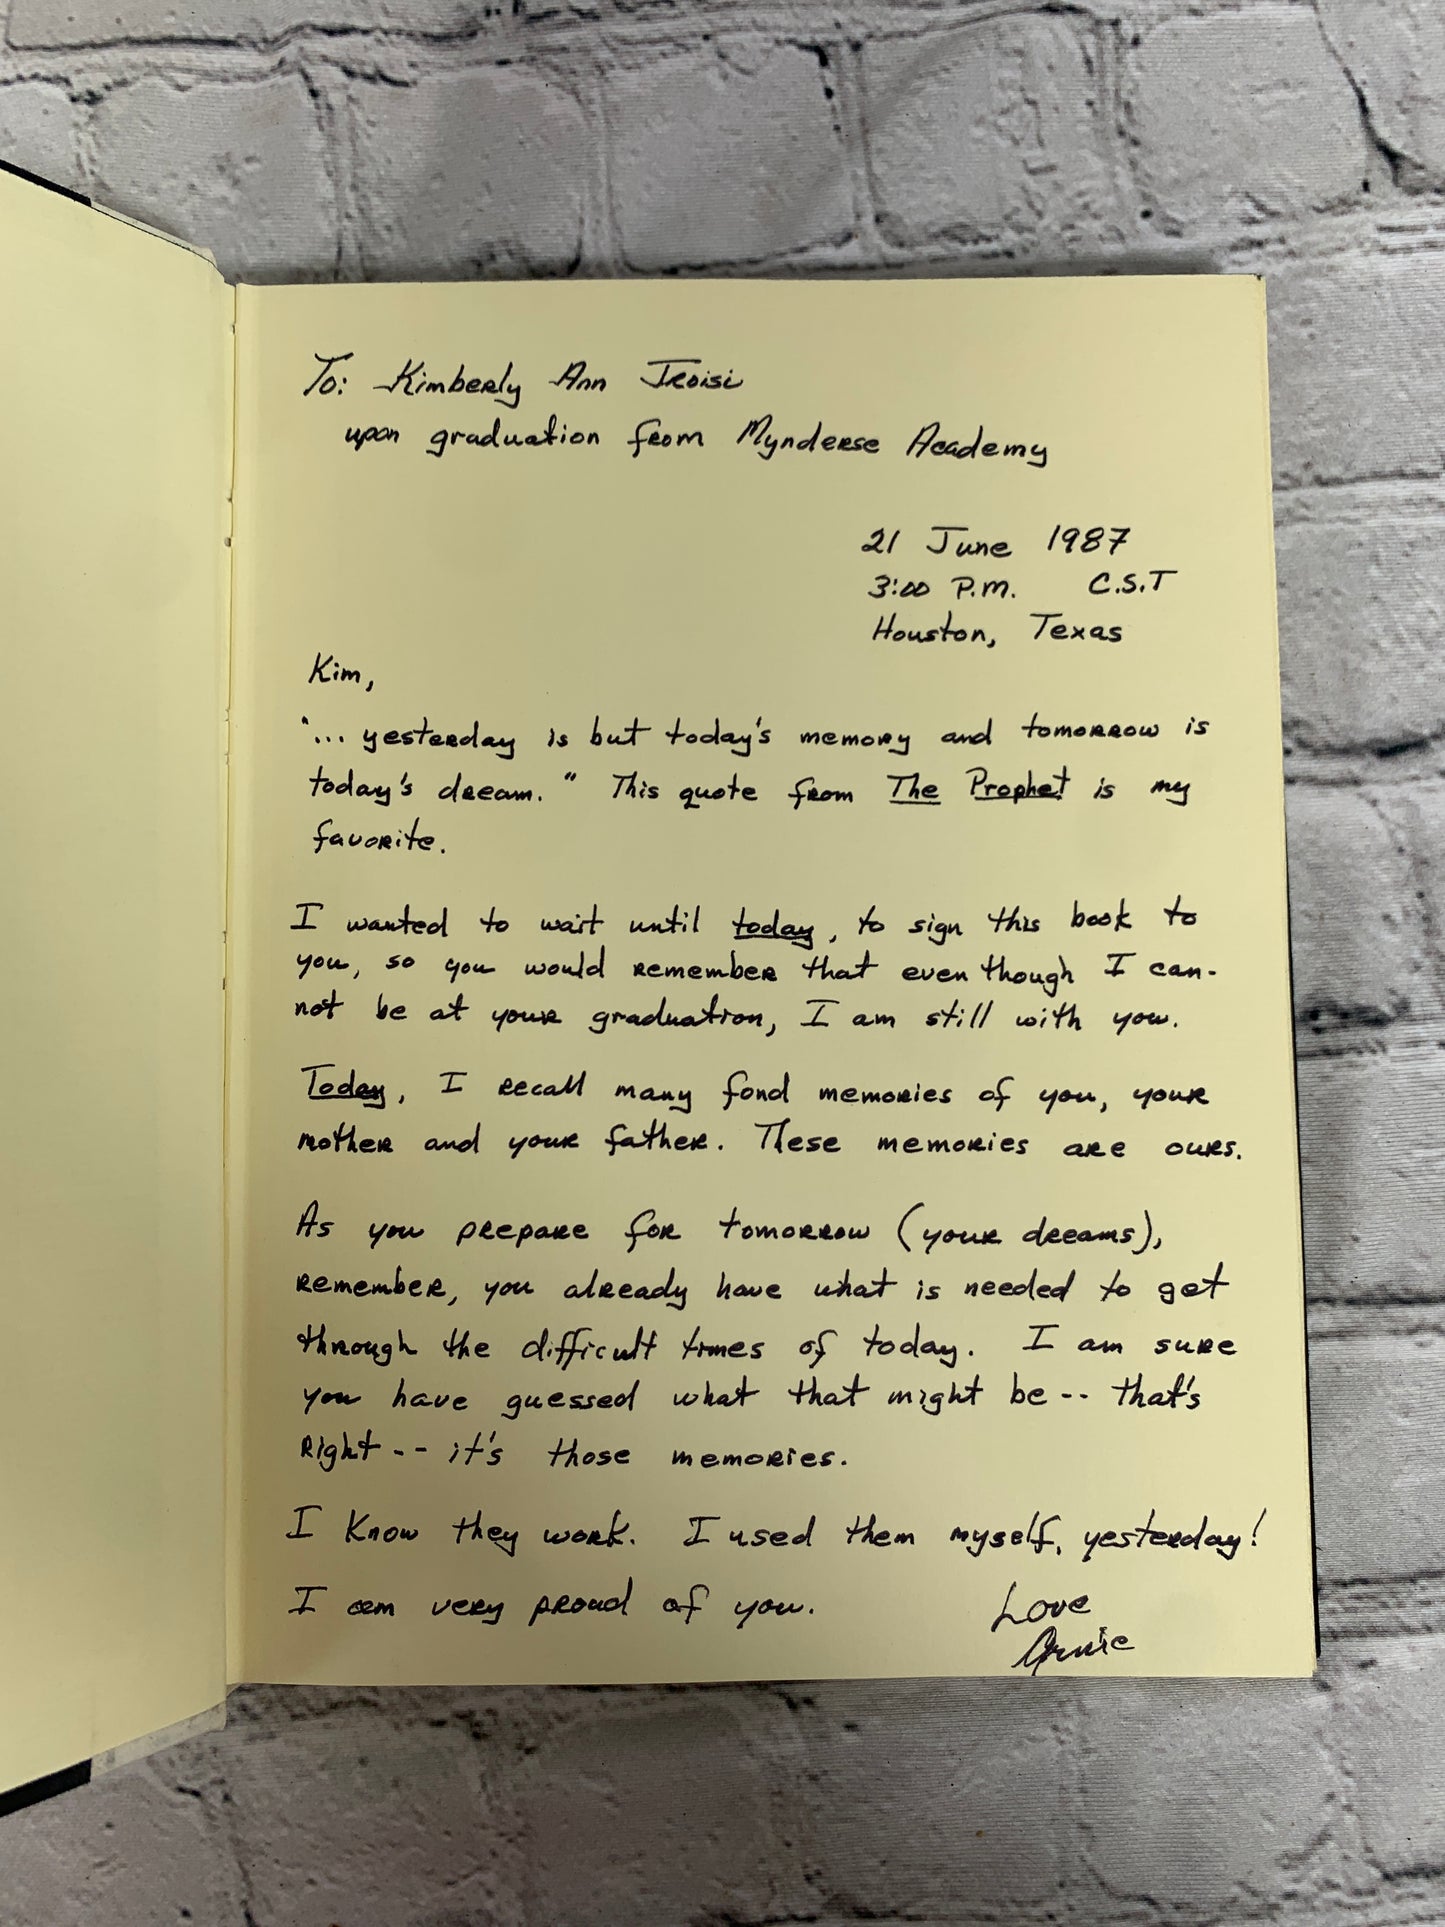 To: Kimberly Ann Troisi
upon graduation from Mynderse Academy
21 June 1987
3:00 P.M. C.S.T
Houston, Texas
Kim,
"... yesterday is but today's memory and tomorrow is
today's dream." This quote from The Prophet is my
favorite.
I wanted to wait until today, to sign this book to
you, so you would remember that even though I can-
not be at your graduation, I am still with you.
Today, I recall many fond memories of you, your
mother and your father. These memories are ours.
As you prepare for tomorrow (your dreams),
remember, you already have what is needed to get
through the difficult times of today. I am sure
you have guessed what that might be -- that's
right -- it's those memories.
I know they work. I used them myself, yesterday!
I am very proud of you.
Love
Arnie